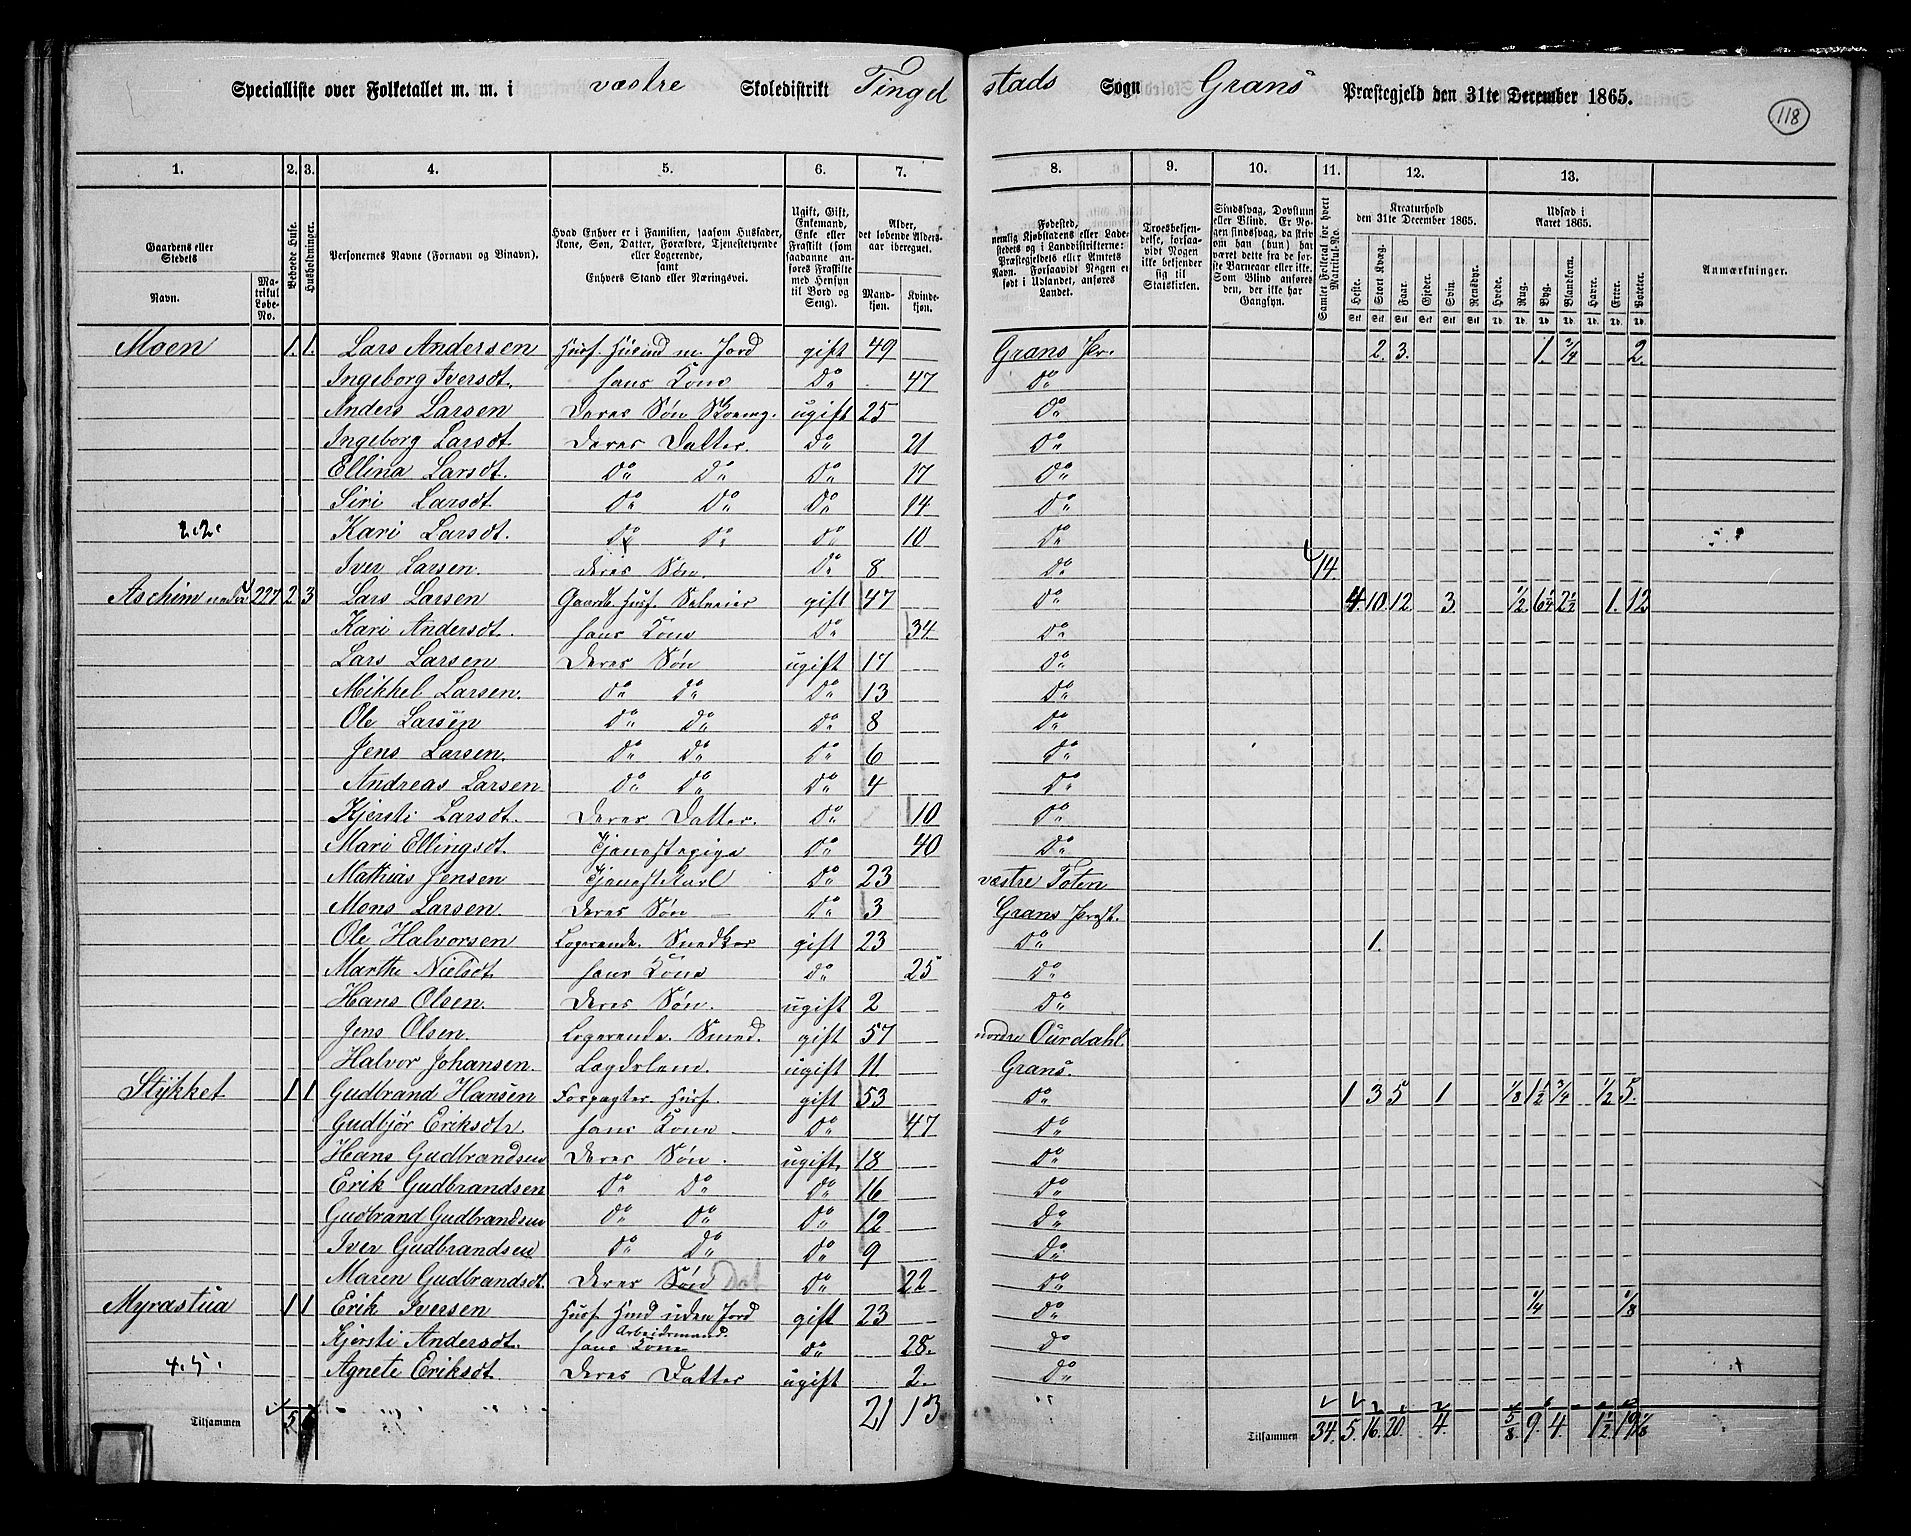 Specialliste over Folketallet m. m. i væstre Skoledistrikt Tingel stads Sogn Grans Præstegjeld den 31te December 1865.
118
1. 2. 3. 4. 5. 6. 7. 8. 9. 10. 11. 12. 13.
Gaardens eller Stedets
Navn.
Matrikul Løbe-No.
Beboede Huse.
Husholdninger.
Personernes Navne (Fornavn og Binavn).
Hvad Enhver er i Familien, saasom Husfader, Kone, Søn, Datter, Forældre, Tjenestetyende eller Logerende, samt Enhvers Stand eller Næringsvei.
Ugift, Gift, Enkemand, Enke eller Fraskilt (som saadanne anføres Fraskilte med Hensyn til Bord og Seng).
Alder, det løbende Alders-aar iberegnet.
Mandkjøn. Kvindekjøn.
Fødested, nemlig Kjøbstadens eller Ladestedets og i Landdistrikterne: Præstegjeldets eller Amtets Navn. Forsaavidt Nogen er født i Udlandet, anføres Landet.
Troesbekjendelse, forsaavidt Nogen ikke bekjender sig til Statskirken.
Sindssvag, Døvstum eller Blind. Er Nogen sindssvag, da skriv om han (hun) har været dette fra de første Barneaar eller ikke. Som Blind anføres den, der ikke har Gangsyn.
Samlet Folketal for hvert Matrikul-No.
Kreaturhold den 31te December 1865.
Heste. Stort Kvæg. Faar. Gjeder. Svin. Rensdyr.
Udsæd i Aaret 1865.
Hvede. Rug. Byg. Blandkorn. Havre. Erter. Poteter.
Anmærkninger.
Moen 1. 1. Lars Andersen Husf. Husmd m. Jord gift 49 Grans Pr. 2. 3. 1. 3/4 2.
Ingeborg Iversdt. hans Kone Do 47 Do
Anders Larsen Deres Søn ugift 25 Do
Ingeborg Larsdt Deres Datter. Do 21 Do
Ellina Larsdt. Do Do Do 17 Do
Siri Larsdt Do Do Do 14 Do
2.2. Kari Larsdt. Do Do Do 10 Do
Iver Larsen. Deres Søn. Do 8 Do 14.
Aschim nedre 227 2 3 Lars Larsen Gaardb. Husf. Selveier gift 47 Do 4. 10. 12 3. 1/2 6 1/4 2 1/2 1. 12
Kari Andersdt. hans Kone Do 34 Do
Lars Larsen Deres Søn ugift 17 Do
Mikkel Larsen. Do Do Do 13 Do
Ole Larsen Do Do Do 8 Do
Jens Larsen. Do Do Do 6 Do
Andreas Larsen Do Do Do 4 Do
Kjersti Larsdt. Deres Datter. Do 10 Do
Mari Ellingsdt. Tjenestepige Do 40 Do
Mathias Jensen TjenesteKarl Do 23 væstre Toten
Mons Larsen. Deres Søn Do 3 Grans Præst.
Ole Halvorsen Logerende. Snedker gift 23 Do 1.
Marthe Nielsdt hans Kone Do 25 Do
Hans Olsen. Deres Søn. ugift 2 Do
Jens Olsen. Logerende. Smed. gift 57 nordre Ourdahl.
Halvor Johansen. Lægdslem. ugift 11 Grans.
Stykket 1 1 Gudbrand Hansen Forpagter Husf. gift 53 Do 1 3 5 1 1/8 1 1/2 3/4 1/2 5.
Gudbjør Eriksdtr. hans Kone Do 47 Do
Hans Gudbrandsen Deres Søn. ugift. 18 Do
Erik Gudbrandsen Do Do Do 16 Do
Gudbrand Gudbrandsen Do Do Do 12 Do
Iver Gudbrandsen Do Do Do 9 Do
Maren Gudbrandsdt. Deres Søn Dat Do 22 Do
Myrastua 1 1 Erik Iversen Husf. Hmd uden Jord gift 23 Do 1/4 1/8
Arbeidsmand.
Kjersti Andersdt. hans Kone Do 28. D
4.5. Agnete Eriksdt Deres Datter ugift 2. Do
Tilsammen 5 21 13 Tilsammen 34. 5. 16. 20. 4. 5/8 9. 4. 1 1/2 19 1/8